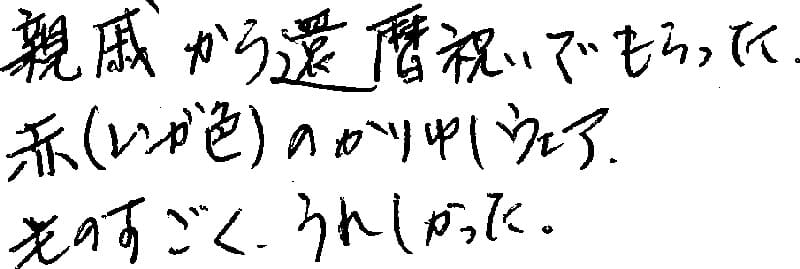 親戚から還暦祝いでもらった、
赤(レンガ色)のかりゆしウェア、
ものすごく、うれしかった。